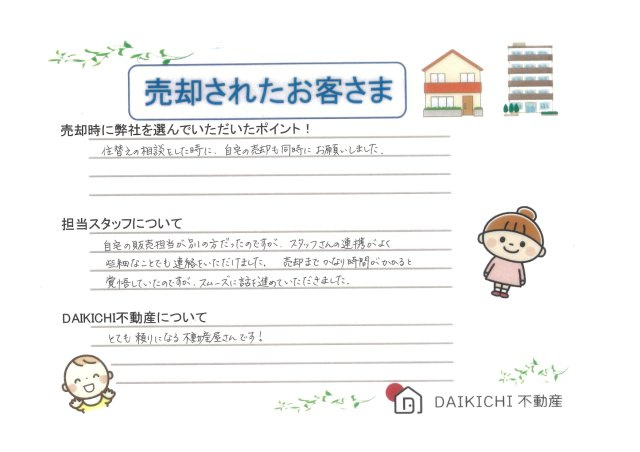 売却されたお客さま
売却時に弊社を選んでいただいたポイント！
住替えの相談をした時に、自宅の売却も同時にお願いしました。
担当スタッフについて
自宅の販売担当が別の方だったのですが、スタッフさんの連携がよく
些細なことでも連絡をいただけました。 売却までかなり時間がかかると
覚悟していたのですが、スムーズに話を進めていただきました。
DAIKICHI不動産について
とても頼りになる不動産屋さんです！
DAIKICHI 不動産